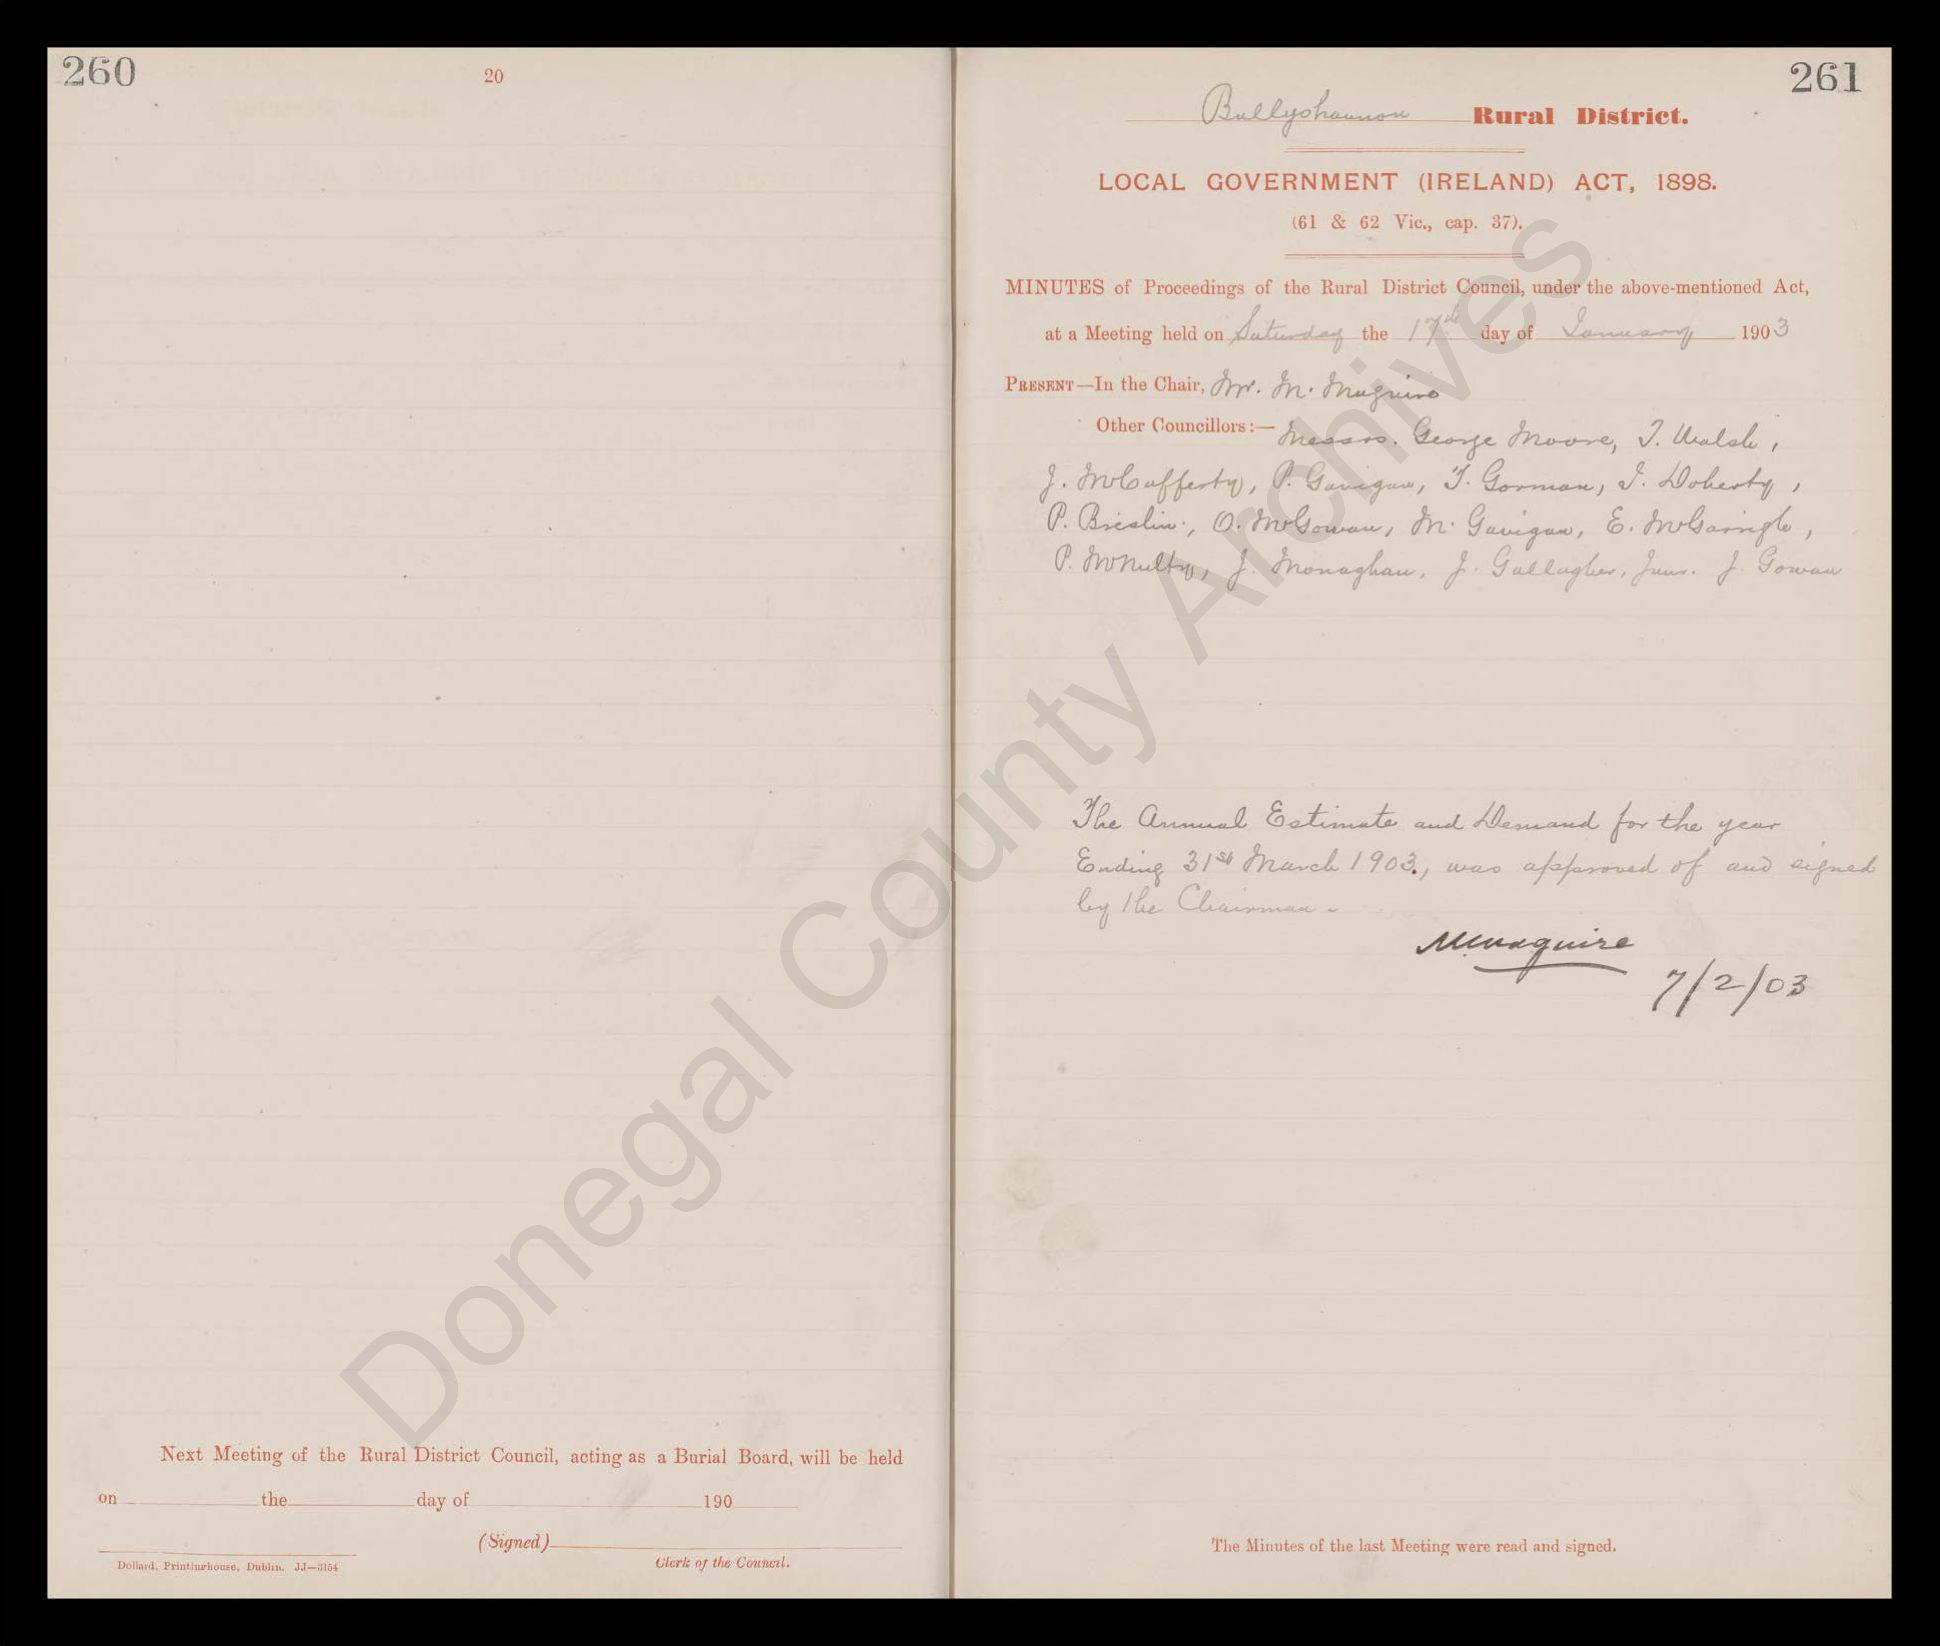 260
20
Next Meeting of the Rural District Council, acting as a Burial Board, will be held
on the day of 190
(Signed)
Clerk of the Council.
Dollard, Printinghouse, Dublin. JJ—3154
261
Ballyshannon Rural District.
LOCAL GOVERNMENT (IRELAND) ACT, 1898.
(61 & 62 Vic., cap. 37).
MINUTES of Proceedings of the Rural District Council, under the above-mentioned Act,
at a Meeting held on Saturday the 17th day of January 1903
PRESENT—In the Chair, Mr. M. Maguire
Other Councillors:— Messrs. George Moore, T. Walsh,
J. McCafferty, P. Gavigan, T. Gorman, J. Doherty,
P. Breslin, O. McGowan, M. Gavigan, E. McGarrigle,
P. McNulty, J. Monaghan, J. Gallagher, Junr. J. Gowan
The Annual Estimate and Demand for the year
Ending 31st March 1903, was approved of and signed
by the Chairman.
M Maguire
7/2/03
The Minutes of the last Meeting were read and signed.
Donegal County Archives